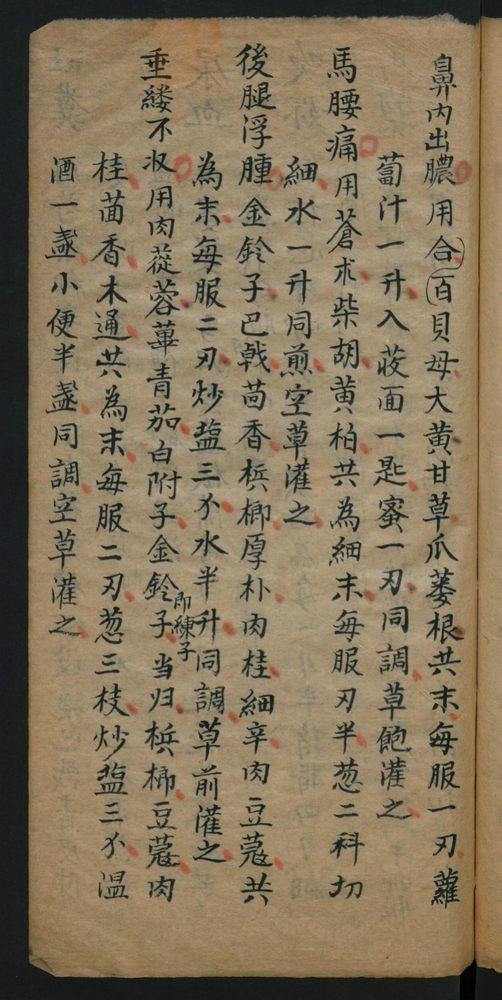 鼻內出膿用合百貝母大黃甘草爪蒌根共末每服一刃蘿
蔔汁一升入荍面一匙蜜一刃同調草飽灌之
馬腰痛用蒼术柴胡黃柏共為細末每服刃半葱二科切
細水一升同煎空草灌之
後腿浮腫金鈴子巴戟茴香梹榔厚朴肉桂細辛肉豆蔻共
為末每服二刃炒盐三分水半升同調草前灌之
垂縷不收用肉蓯蓉蓽青茄白附子金鈴子即練子当归梹榔豆蔻肉
桂茴香木通共為末每服二刃葱三枝炒盐三分温
酒一盞小便半盞同調空草灌之